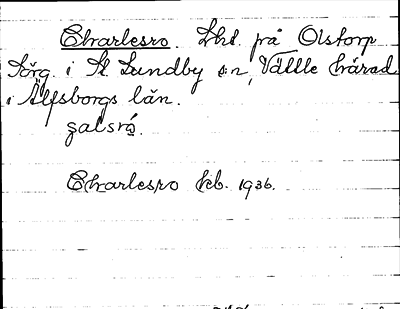 Charlesro. Lht. på Olstorp
Sörg. i St. Lundby sn, Vättle härad
i Älfsborgs län.
ʂaɭsró.
Charlesro kb. 1936.